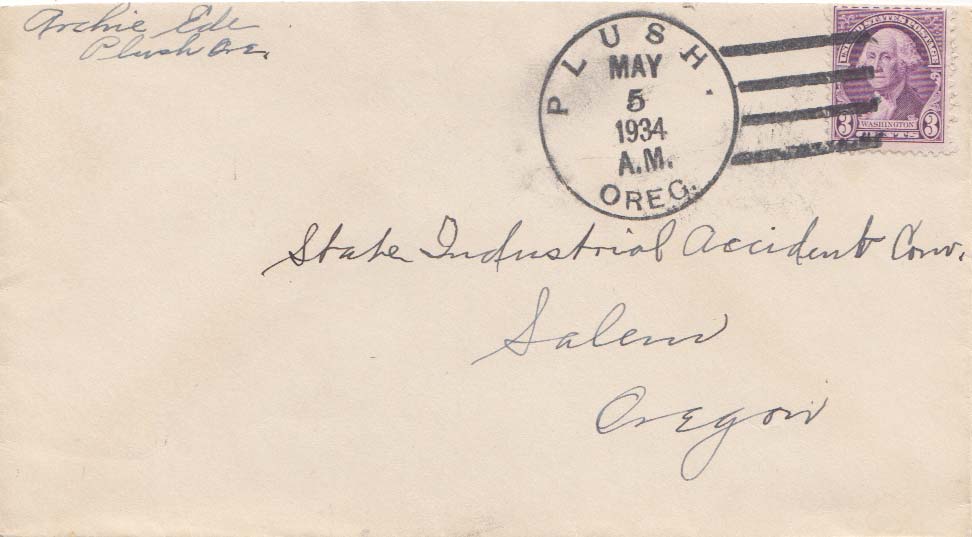 Archie Ede
Plush Ore.
PLUSH.
MAY
5
1934
A.M.
OREG.
UNITED STATES POSTAGE
3 WASHINGTON 3
CENTS
State Industrial Accident Com.
Salem
Oregon